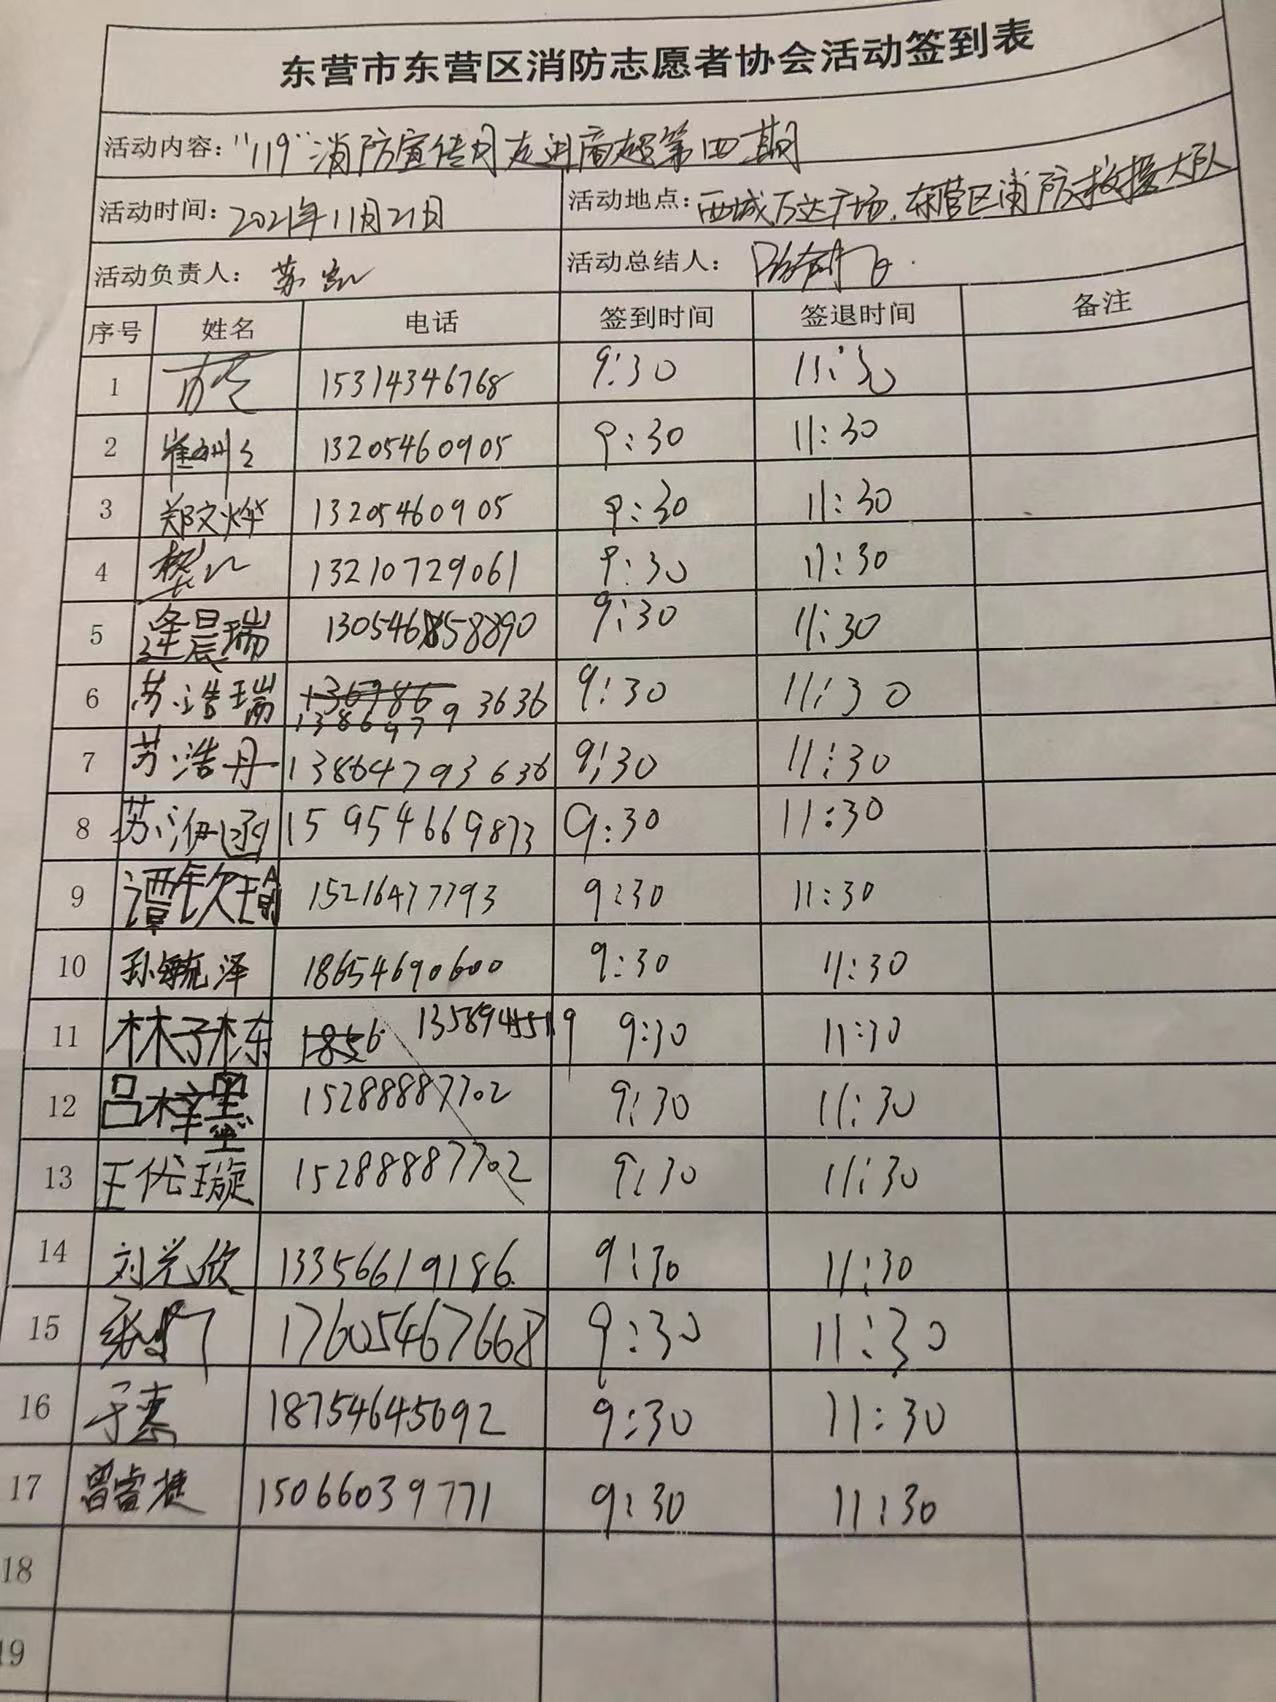 东营市东营区消防志愿者协会活动签到表
活动内容："119"消防宣传月走进商超第四期
活动时间：2021年11月21日 活动地点：西城万达广场、东营区消防救援大队
活动负责人：苏 活动总结人：
序号 姓名 电话 签到时间 签退时间 备注
1 15314346768 9:30 11:30
2 13205460905 9:30 11:30
3 郑文烨 13205460905 9:30 11:30
4 13210729061 9:30 11:30
5 逄晨瑞 9:30 11:30
6 苏浩瑞 3636 9:30 11:30
7 苏浩丹 13864793636 9:30 11:30
8 苏洢函 15954669873 9:30 11:30
9 谭钦瑜 15216477793 9:30 11:30
10 孙毓泽 18654690600 9:30 11:30
11 林子栋 13589455519 9:30 11:30
12 吕梓墨 15288887702 9:30 11:30
13 王优璇 15288887702 9:30 11:30
14 刘芫欣 13356619186 9:30 11:30
15 17605467668 9:30 11:30
16 于惠 18754645692 9:30 11:30
17 曹睿捷 15066039771 9:30 11:30
18
19